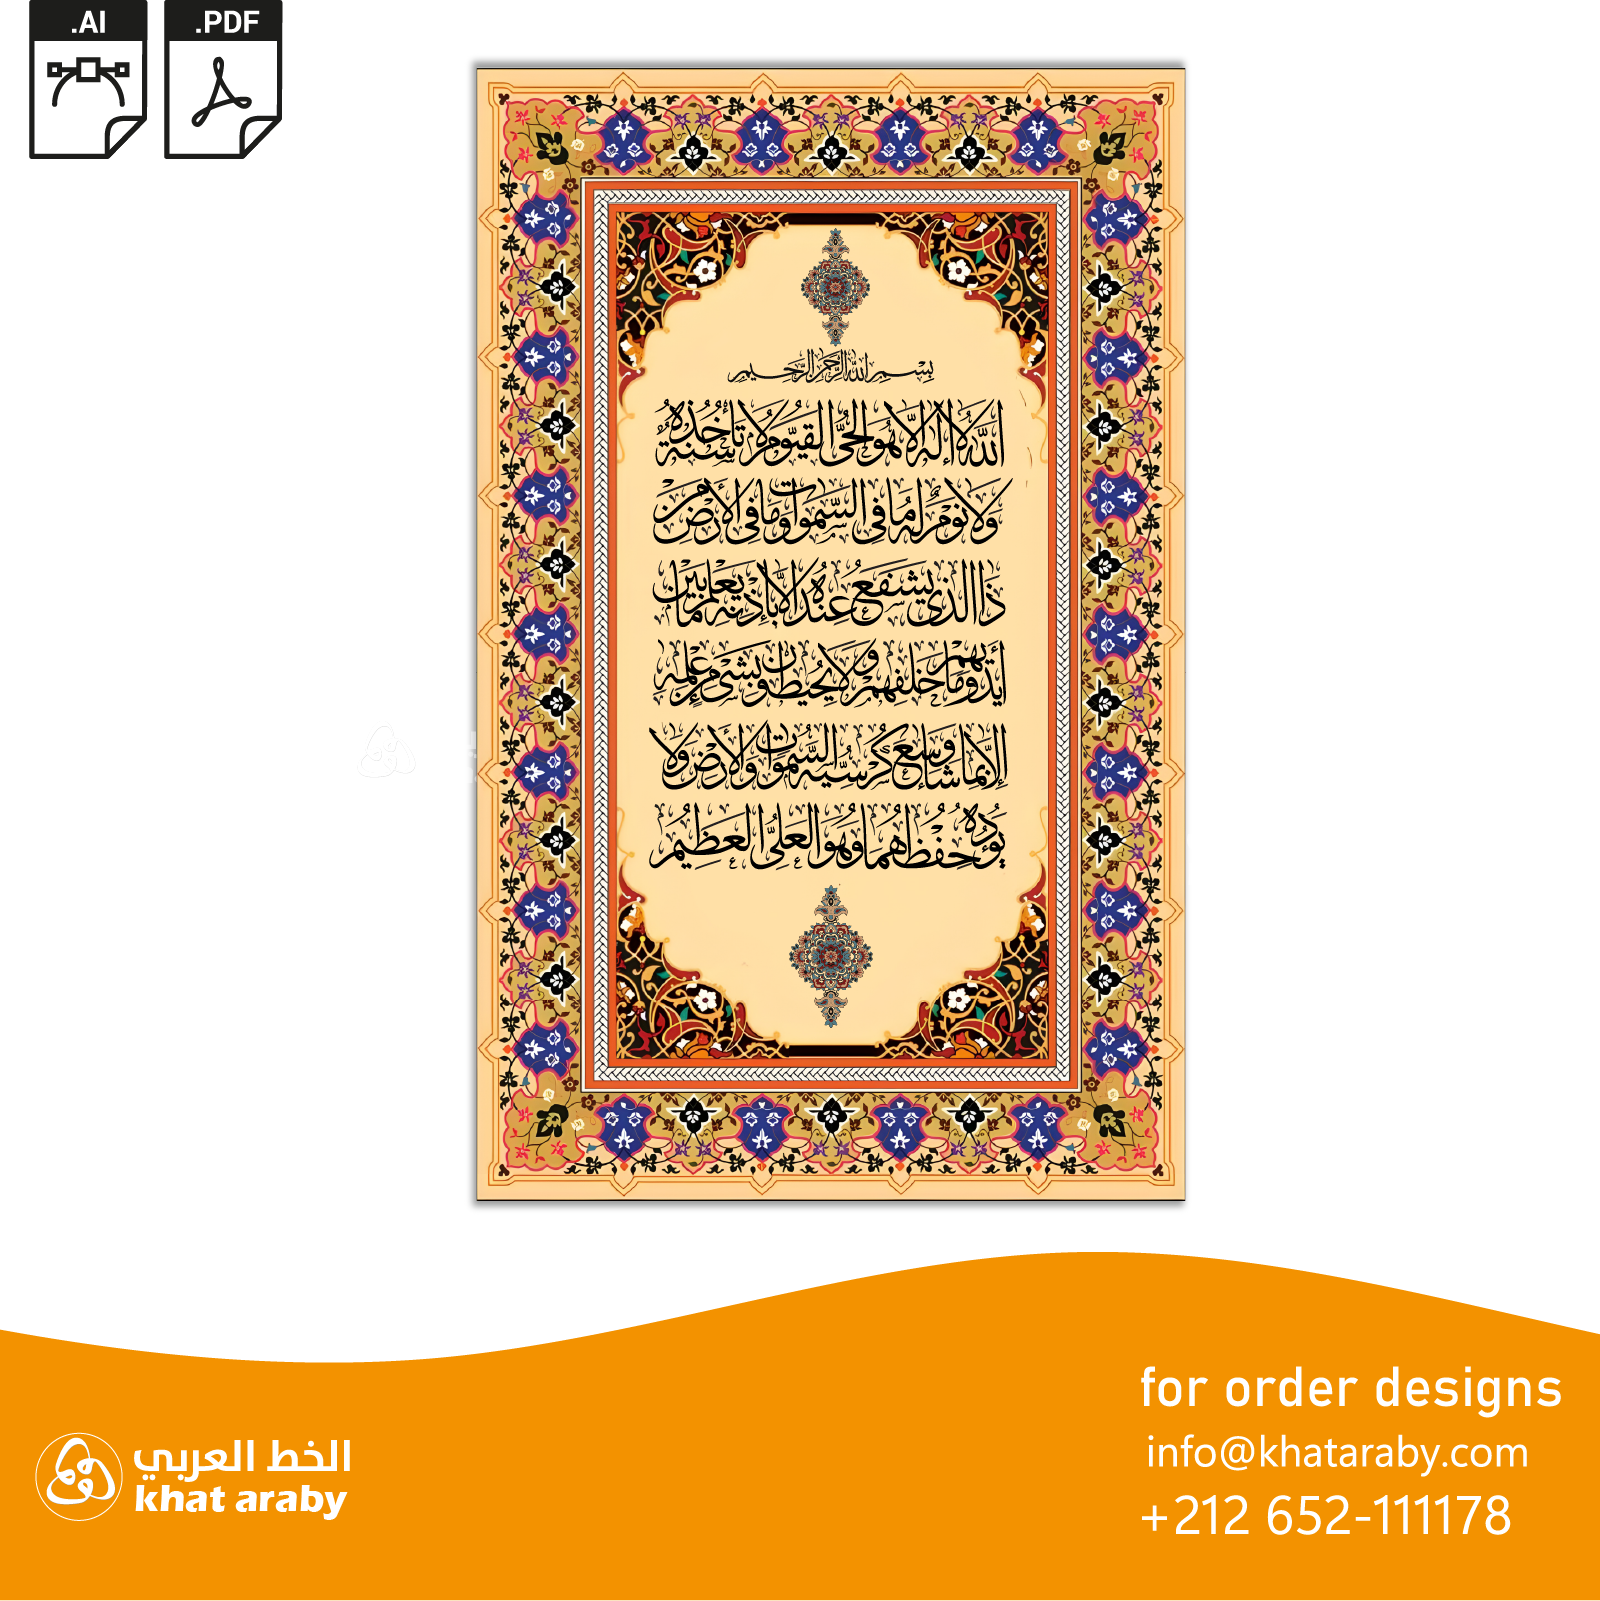 .AI
.PDF
بِسْمِ اللهِ الرَّحْمٰنِ الرَّحِيمِ
اللَّهُ لَا إِلَهَ إِلَّا هُوَ الْحَيُّ الْقَيُّومُ لَا تَأْخُذُهُ سِنَةٌ
وَلَا نَوْمٌ لَهُ مَا فِي السَّمَوَاتِ وَمَا فِي الْأَرْضِ مَنْ
ذَا الَّذِي يَشْفَعُ عِنْدَهُ إِلَّا بِإِذْنِهِ يَعْلَمُ مَا بَيْنَ
أَيْدِيهِمْ وَمَا خَلْفَهُمْ وَلَا يُحِيطُونَ بِشَيْءٍ مِنْ عِلْمِهِ
إِلَّا بِمَا شَاءَ وَسِعَ كُرْسِيُّهُ السَّمَوَاتِ وَالْأَرْضَ وَلَا
يَؤُدُهُ حِفْظُهُمَا وَهُوَ الْعَلِيُّ الْعَظِيمُ
for order designs
info@khataraby.com
+212 652-111178
الخط العربي
khat araby